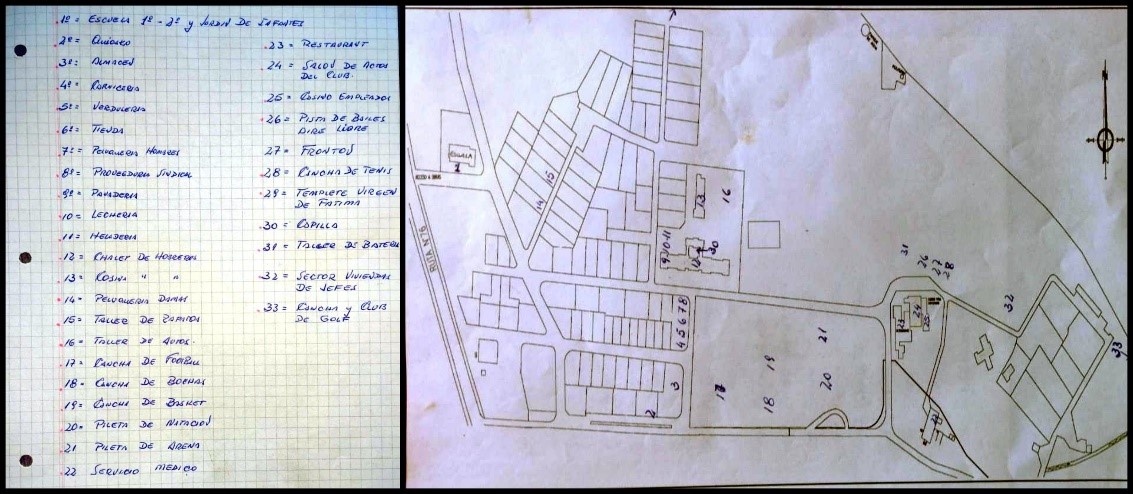 1º = ESCUELA 1º - 2º y JARDIN DE INFANTES
2º = QUIOSCO
3º = ALMACEN
4º = CARNICERIA
5º = VERDULERIA
6º = TIENDA
7º = PELUQUERIA HOMBRES
8º = PROVEEDURIA SINDICAL
9º = PANADERIA
10 = LECHERIA
11 = HELADERIA
12 = CHALET DE HOSTERIA
13 = CASINO " "
14 = PELUQUERIA DAMAS
15 = TALLER DE ZAPATOS
16 = TALLER DE AUTOS.
17 = CANCHA DE FOOTBALL
18 = CANCHA DE BOCHAS
19 = CANCHA DE BASKET
20 = PILETA DE NATACION
21 PILETA DE ARENA
22 SERVICIO MEDICO
23 = RESTAURANT
24 = SALON DE ACTOS
DEL CLUB.
25 = CASINO EMPLEADOS
26 = PISTA DE BAILES
AIRE LIBRE
27 = FRONTON
28 = CANCHA DE TENIS
29 = TEMPLETE VIRGEN
DE FATIMA
30 = CAPILLA
31 = TALLER DE BATERIA
32 = SECTOR VIVIENDAS
DE JEFES
33 = CANCHA y CLUB
DE GOLF
ESCUELA
1
RUTA Nº16
14
15
13
16
9-10-11
12
30
4 5 6 7 8
2
3
17
18
19
20
21
31
26
27
28
24
25
32
33